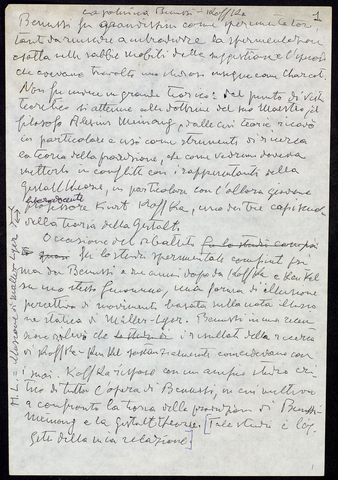 La polemica Benussi - Koffka
1
Benussi fu grandissimo come sperimentatore
tanto da riuscire a introdurre la sperimentazione
esatta nelle sabbie mobili della suggestione e l'ipnosi
che avevano travolto uno studioso insigne come Charcot.
Non fu invece un grande teorico: dal punto di vista
teorico si attenne alla dottrina del suo Maestro, il
filosofo Alexius Meinong, dalle cui teorie ricavò
in particolare e usò come strumenti di ricerca
la teoria della produzione, che come vedremo doveva
metterlo in conflitto coi rappresentanti della
Gestalttheorie, in particolare con l'allora giovane
liberodocente
professore Kurt Koffka, uno dei tre capiscuola
della teoria della Gestalt.
Occasione del dibattito
fu lo studio sperimentale compiuto prima
da Benussi e due anni dopo da Koffka e Kenkel
su uno stesso fenomeno, una forma di illusione
percettiva di movimento basata sulla nota illusione
statica di Müller-Lyer. Benussi in una recensione
rilevò che i risultati della ricerca
di Koffka-Kenkel sostanzialmente coincidevano con
i suoi. Koffka rispose con un ampio studio critico
di tutta l'opera di Benussi, in cui metteva
a confronto la teoria della produzione di Benussi-
Meinong e la Gestalttheorie. [Tale studio è l'oggetto
della mia relazione]
M.L. = illusione di Müller-Lyer